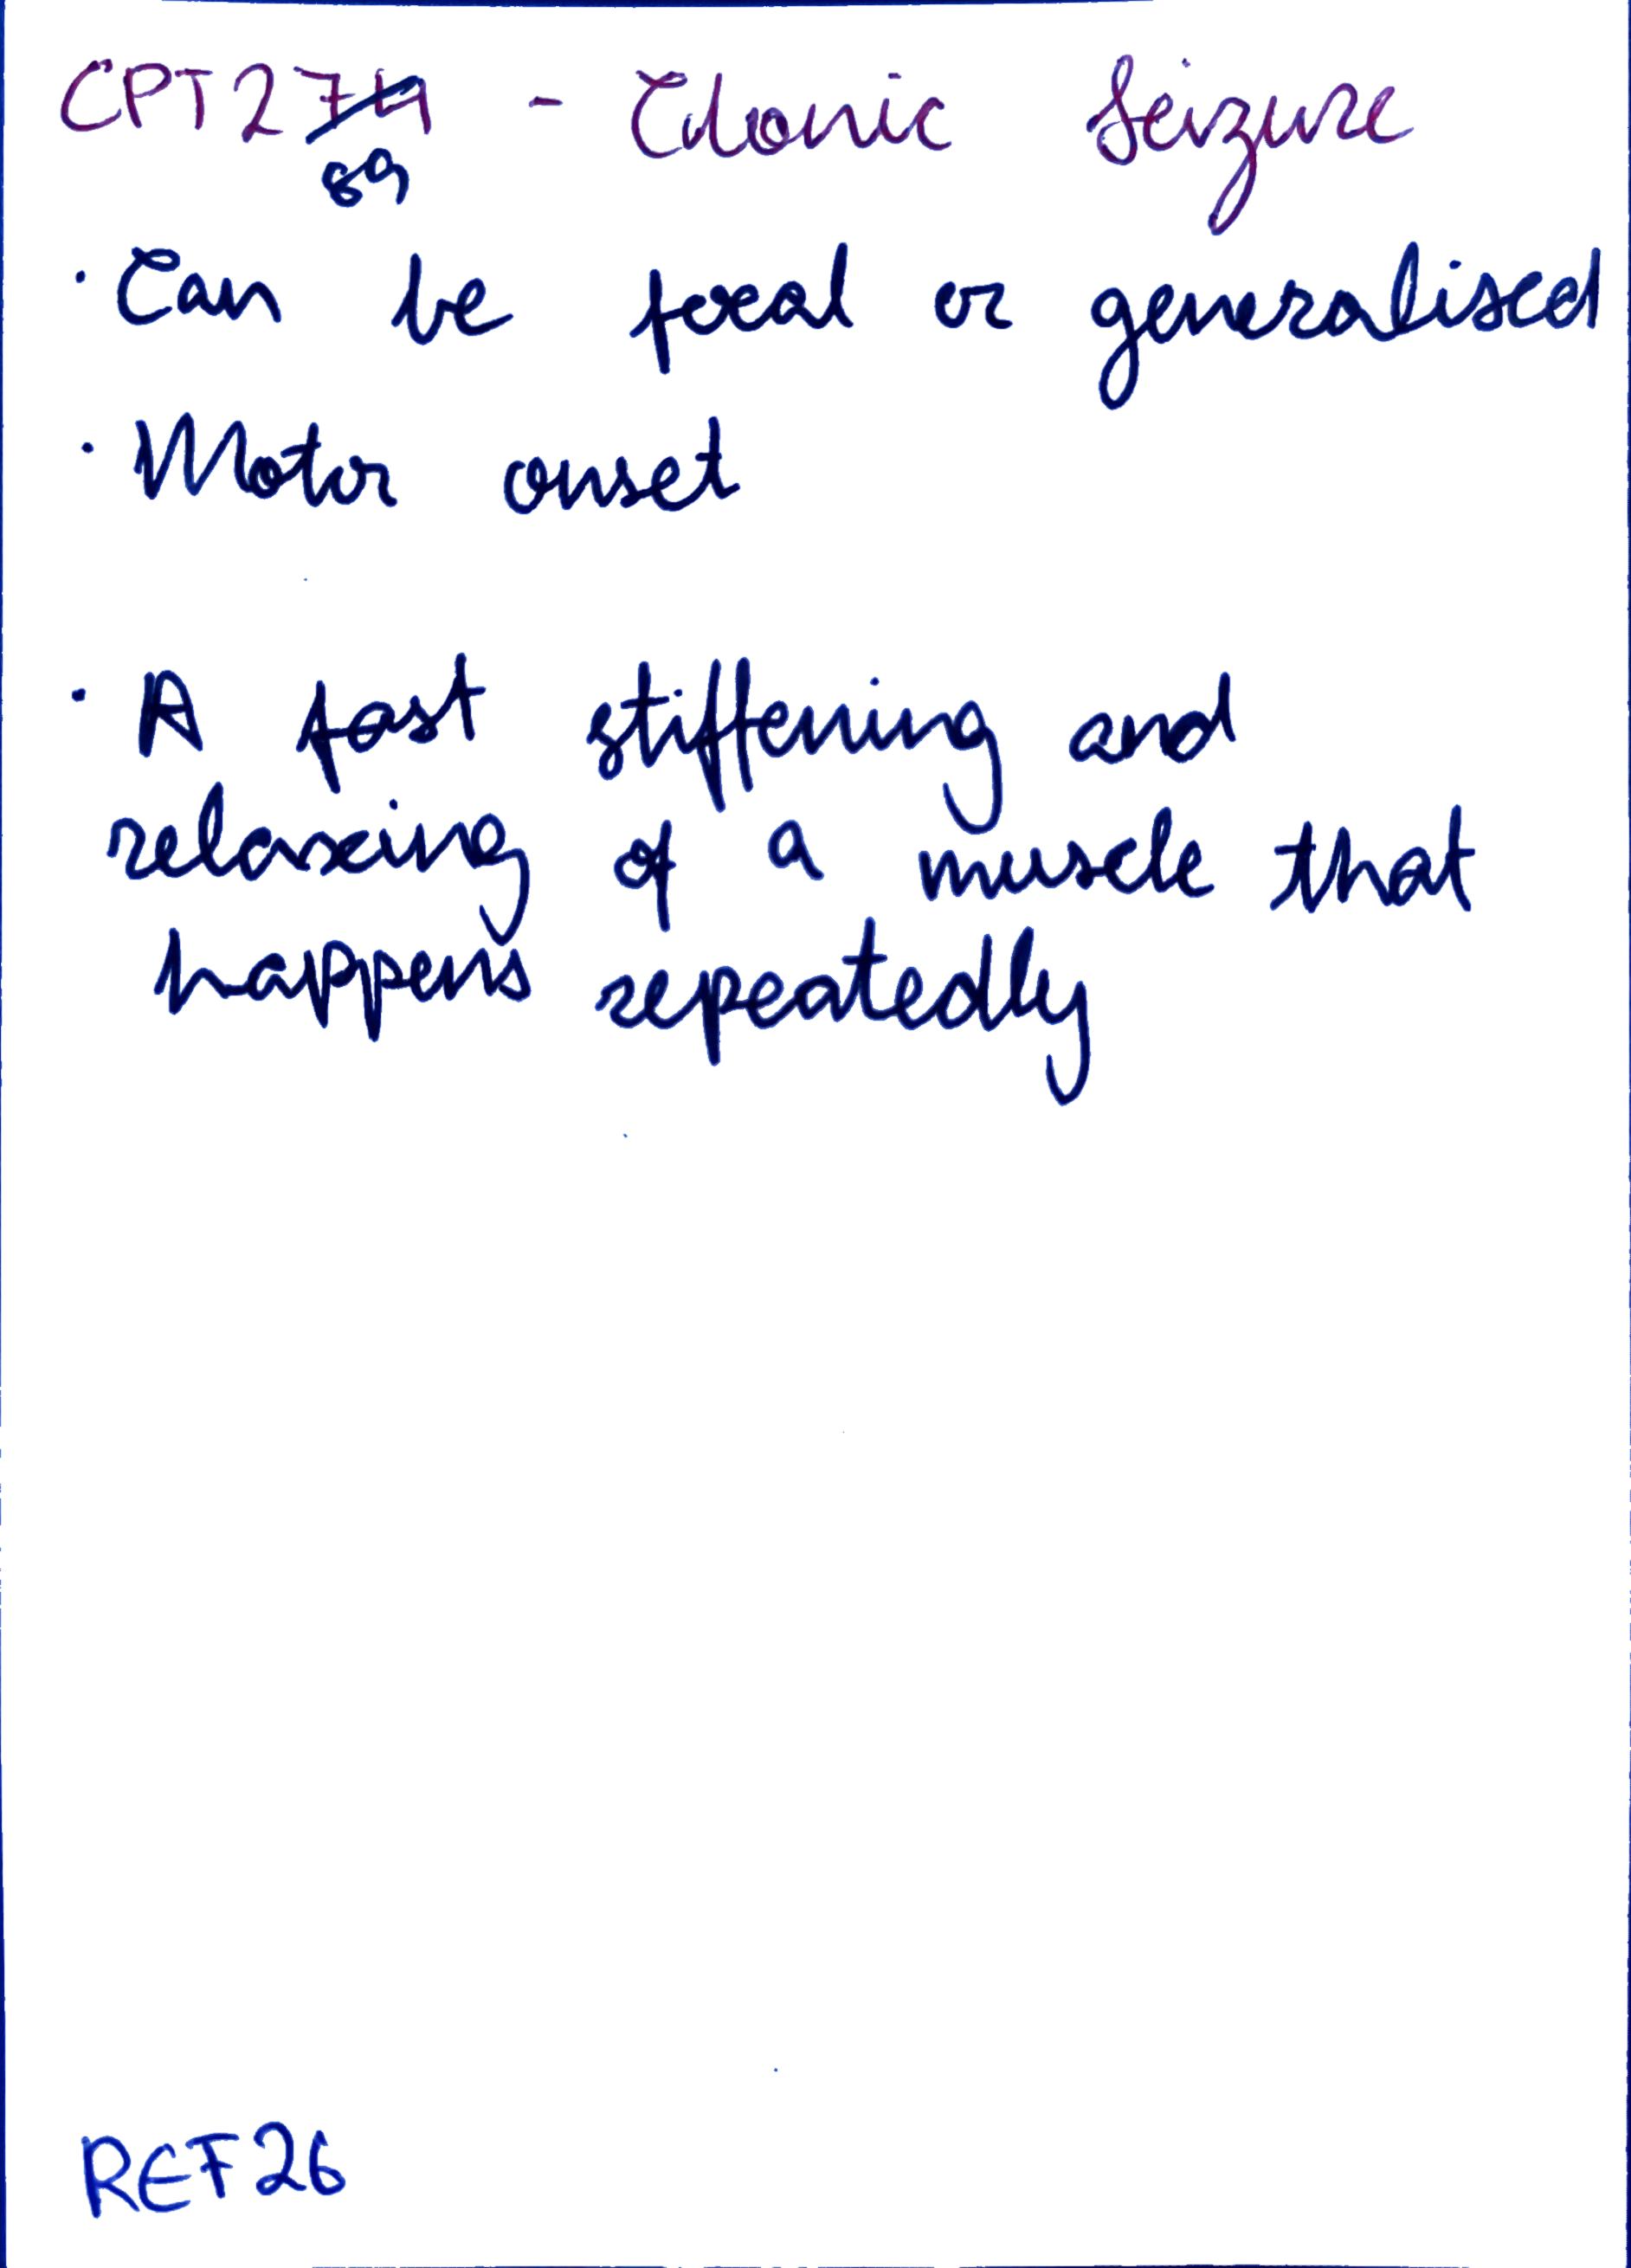 CPT274 - Clonic Seizure
89
· Can be focal or generalised
· Motor onset
· A fast stiffening and
relaxing of a muscle that
happens repeatedly
REF26